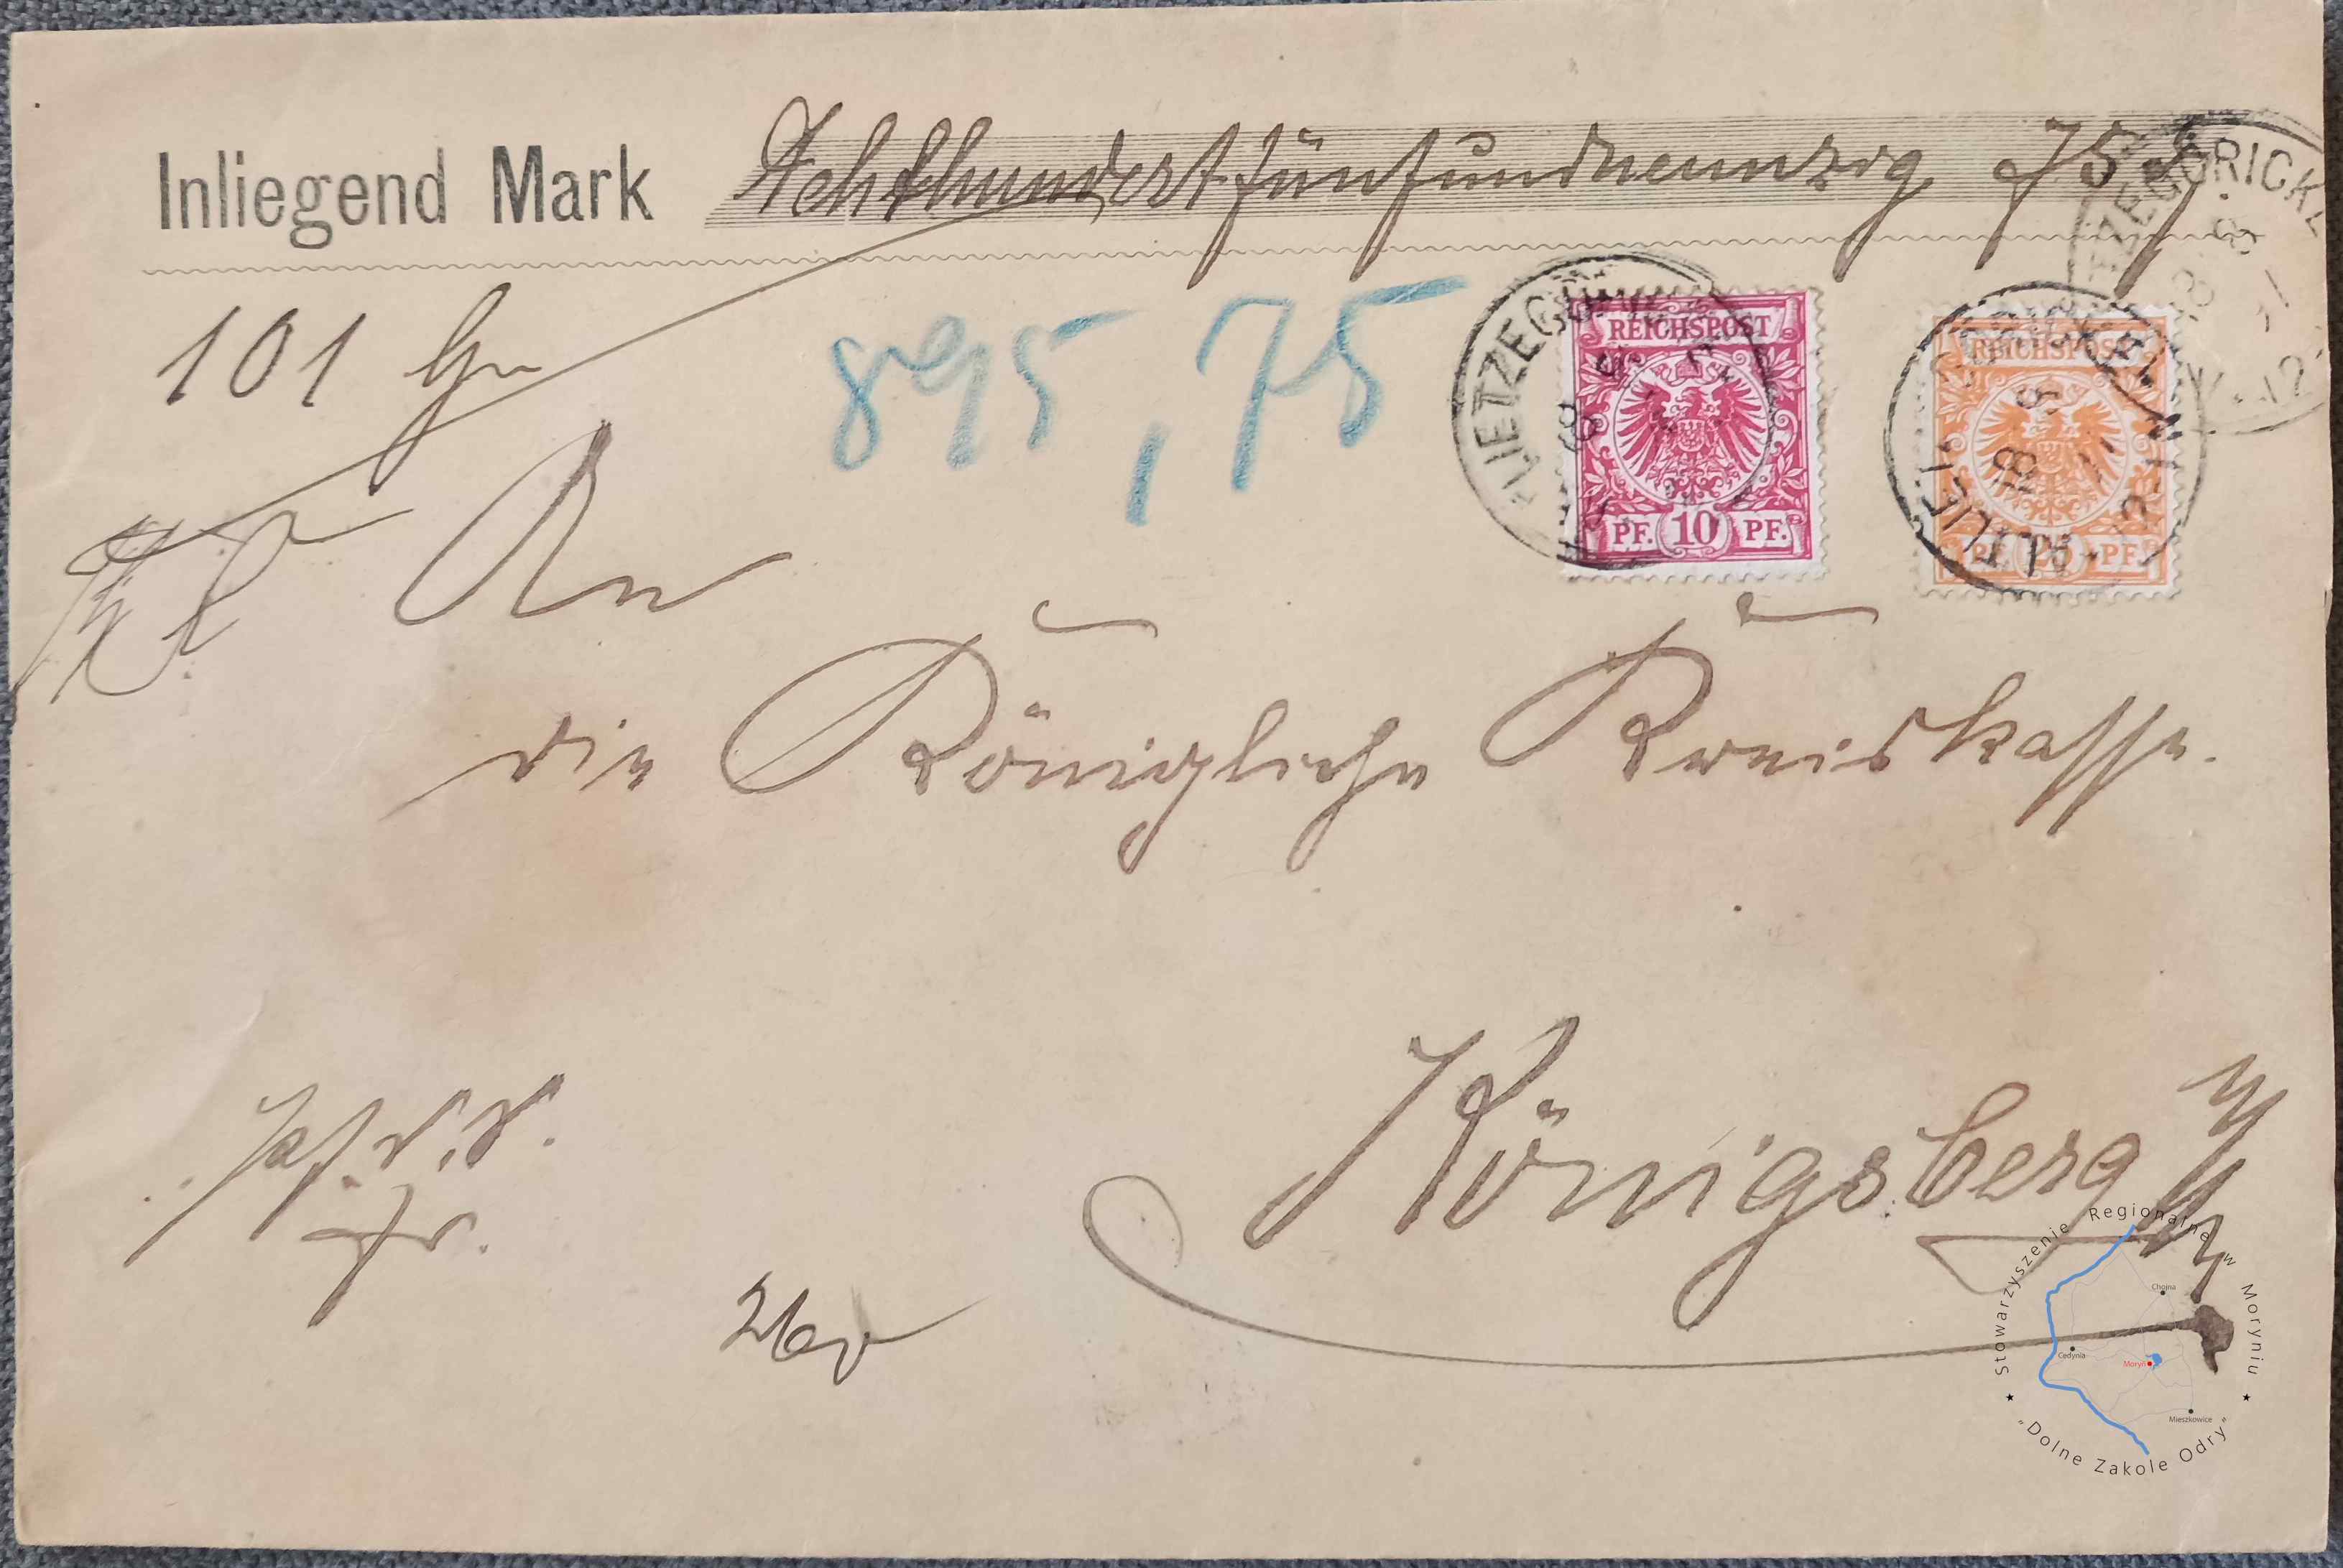 Inliegend Mark Achthundertfünfundneunzig 75 ₰
101 Gr
895,75
REICHSPOST
PF. 10 PF.
REICHSPOST
PF. 25 PF.
LIETZEGÖRICKE
18 8
LIETZEGÖRICKE
18 8
LIETZEGÖRICKE
18 8
An
die Königliche Kreiskasse.
Königsberg N/M
Stowarzyszenie Regionalne w Moryniu
Chojna
Cedynia
Moryń
Mieszkowice
"Dolne Zakole Odry"